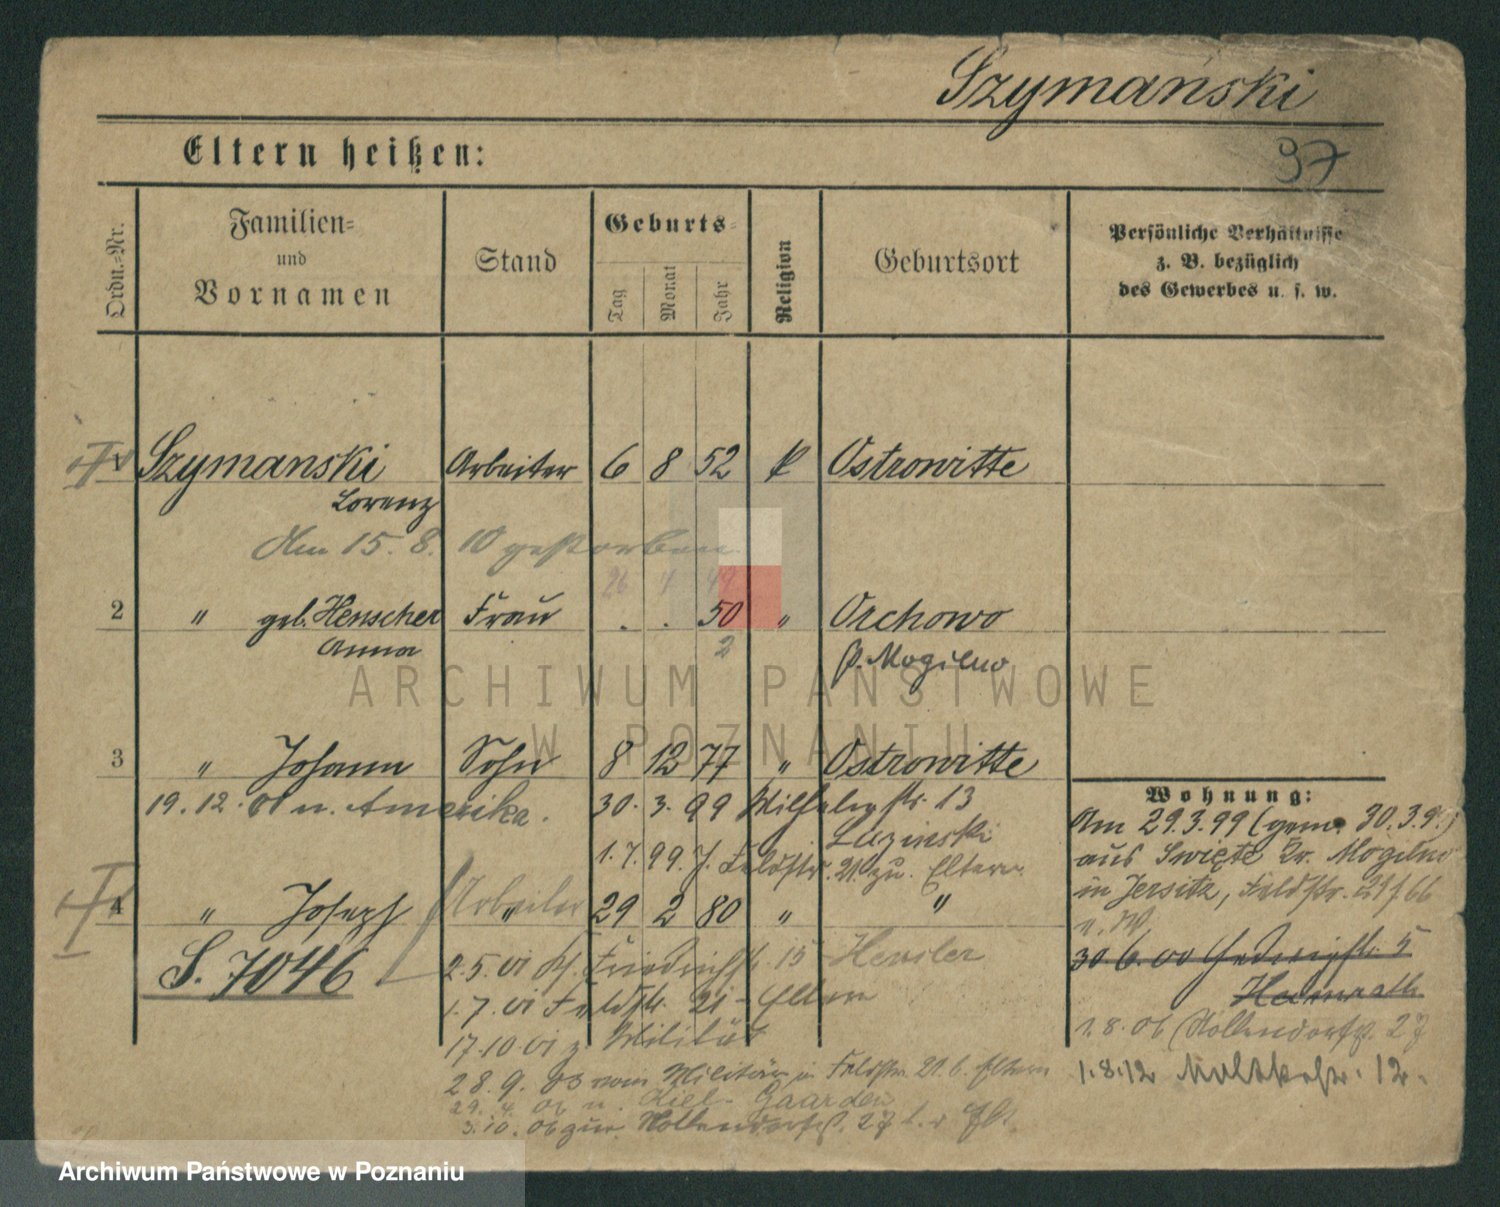 Szymański
97
Eltern heißen:
Ordn.-Nr.
Familien-
und
Vornamen
Stand
Geburts-
Tag
Monat
Jahr
Religion
Geburtsort
Persönliche Verhältnisse
z. B. bezüglich
des Gewerbes u. s. w.
Szymanski Arbeiter 6 8 52 k Ostrowitte
Lorenz
Am 15. 8. 10 gestorben
26 4 49
2 " geb. Henscher Frau . . 50 " Orchowo
Anna 2 P. Mogilno
ARCHIWUM PAŃSTWOWE
W POZNANIU
3 " Johann Sohn 8 12 77 " Ostrowitte
19. 12. 01 n. Amerika. 30. 3. 99 Wilhelmstr. 13
Luzinski
1. 7. 99. J. Feldstr. 21. zu. Eltern
4 " Joseph Arbeiter " 29 2 80 " "
S. 7046
2. 5. 01 Friedrichstr. 15 Hensler
1. 7. 01 Feldstr. 21 - Eltern
17. 10. 01 z. Militär
28. 9. 03 vom Militär in Feldstr. 21. b. Eltern
29. 4. 06 n. Kiel-Gaarden
3. 10. 06 zur. Hollendorfstr. 27
Wohnung:
Am 29. 3. 99 (gem. 30. 3. 9.)
aus Swięte Kr. Mogilno
in Jersitz, Feldstr. 21 f 66
30. 6. 00 Hedwigstr. 5
Heimrath
1. 8. 06 Hollendorfstr. 27
1. 8. 12 Moltkestr. 12.
Archiwum Państwowe w Poznaniu